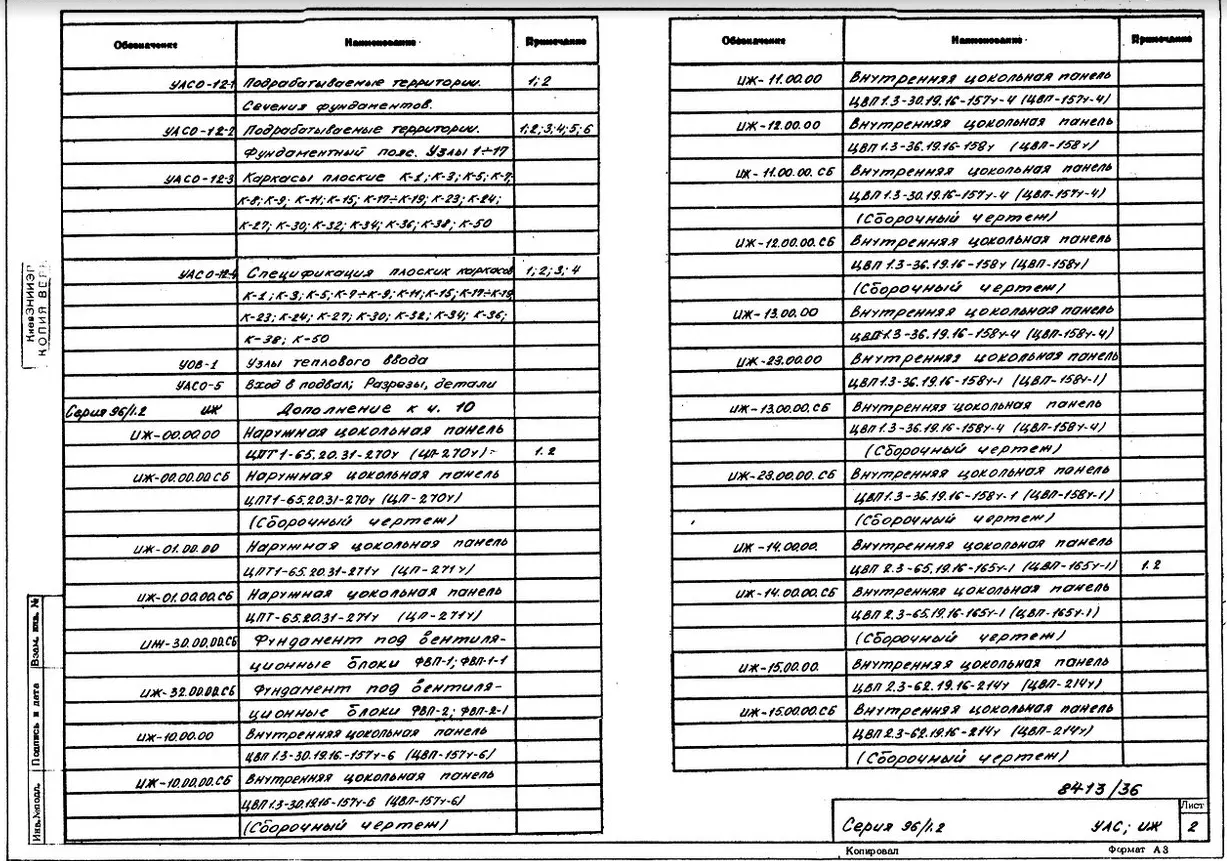 Обозначение Наименование Примечание
УАСО-12-1 Подрабатываемые территории. 1; 2
Сечения фундаментов.
УАСО-12-2 Подрабатываемые территории. 1; 2; 3; 4; 5; 6
Фундаментный пояс. Узлы 1÷17
УАСО-12-3 Каркасы плоские К-2; К-3; К-5; К-7;
К-8; К-9; К-11; К-15; К-17÷К-19; К-23; К-24;
К-27; К-30; К-32; К-34; К-36; К-38; К-50
УАСО-12-4 Спецификация плоских каркасов 1; 2; 3; 4
К-2; К-3; К-5; К-7÷К-9; К-11; К-15; К-17÷К-19
К-23; К-24; К-27; К-30; К-32; К-34; К-36;
К-38; К-50
УОВ-1 Узлы теплового ввода
УАСО-5 Вход в подвал; Разрезы, детали
Серия 96/1.2 ИЖ Дополнение к ч. 10
ИЖ-00.00.00 Наружная цокольная панель
ЦПТ1-65.20.31-270у (ЦП-270у) 1.2
ИЖ-00.00.00.СБ Наружная цокольная панель
ЦПТ1-65.20.31-270у (ЦП-270у)
(Сборочный чертеж)
ИЖ-01.00.00 Наружная цокольная панель
ЦПТ1-65.20.31-271у (ЦП-271у)
ИЖ-01.00.00.СБ Наружная цокольная панель
ЦПТ-65.20.31-271у (ЦП-271у)
ИЖ-30.00.00.СБ Фундамент под вентиля-
ционные блоки ФВП-1; ФВП-1-1
ИЖ-32.00.00.СБ Фундамент под вентиля-
ционные блоки ФВП-2; ФВП-2-1
ИЖ-10.00.00 Внутренняя цокольная панель
ЦВП1.3-30.19.16-157у-6 (ЦВП-157у-6)
ИЖ-10.00.00.СБ Внутренняя цокольная панель
ЦВП1.3-30.19.16-157у-6 (ЦВП-157у-6)
(Сборочный чертеж)
Обозначение Наименование Примечание
ИЖ-11.00.00 Внутренняя цокольная панель
ЦВП1.3-30.19.16-157у-4 (ЦВП-157у-4)
ИЖ-12.00.00 Внутренняя цокольная панель
ЦВП1.3-36.19.16-158у (ЦВП-158у)
ИЖ-11.00.00.СБ Внутренняя цокольная панель
ЦВП1.3-30.19.16-157у-4 (ЦВП-157у-4)
(Сборочный чертеж)
ИЖ-12.00.00.СБ Внутренняя цокольная панель
ЦВП1.3-36.19.16-158у (ЦВП-158у)
(Сборочный чертеж)
ИЖ-13.00.00 Внутренняя цокольная панель
ЦВП1.3-36.19.16-158у-4 (ЦВП-158у-4)
ИЖ-23.00.00 Внутренняя цокольная панель
ЦВП1.3-36.19.16-158у-1 (ЦВП-158у-1)
ИЖ-13.00.00.СБ Внутренняя цокольная панель
ЦВП1.3-36.19.16-158у-4 (ЦВП-158у-4)
(Сборочный чертеж)
ИЖ-23.00.00.СБ Внутренняя цокольная панель
ЦВП1.3-36.19.16-158у-1 (ЦВП-158у-1)
(Сборочный чертеж)
ИЖ-14.00.00. Внутренняя цокольная панель
ЦВП 2.3-65.19.16-165у-1 (ЦВП-165у-1) 1.2
ИЖ-14.00.00.СБ Внутренняя цокольная панель
ЦВП 2.3-65.19.16-165у-1 (ЦВП-165у-1)
(Сборочный чертеж)
ИЖ-15.00.00. Внутренняя цокольная панель
ЦВП 2.3-62.19.16-214у (ЦВП-214у)
ИЖ-15.00.00.СБ Внутренняя цокольная панель
ЦВП 2.3-62.19.16-214у (ЦВП-214у)
(Сборочный чертеж)
8413/36
Серия 96/1.2 УАС; ИЖ Лист 2
Копировал Формат А3
КиевЗНИИЭП
КОПИЯ ВЕР
Взам. инв. №
Подпись и дата
Инв.№подл.